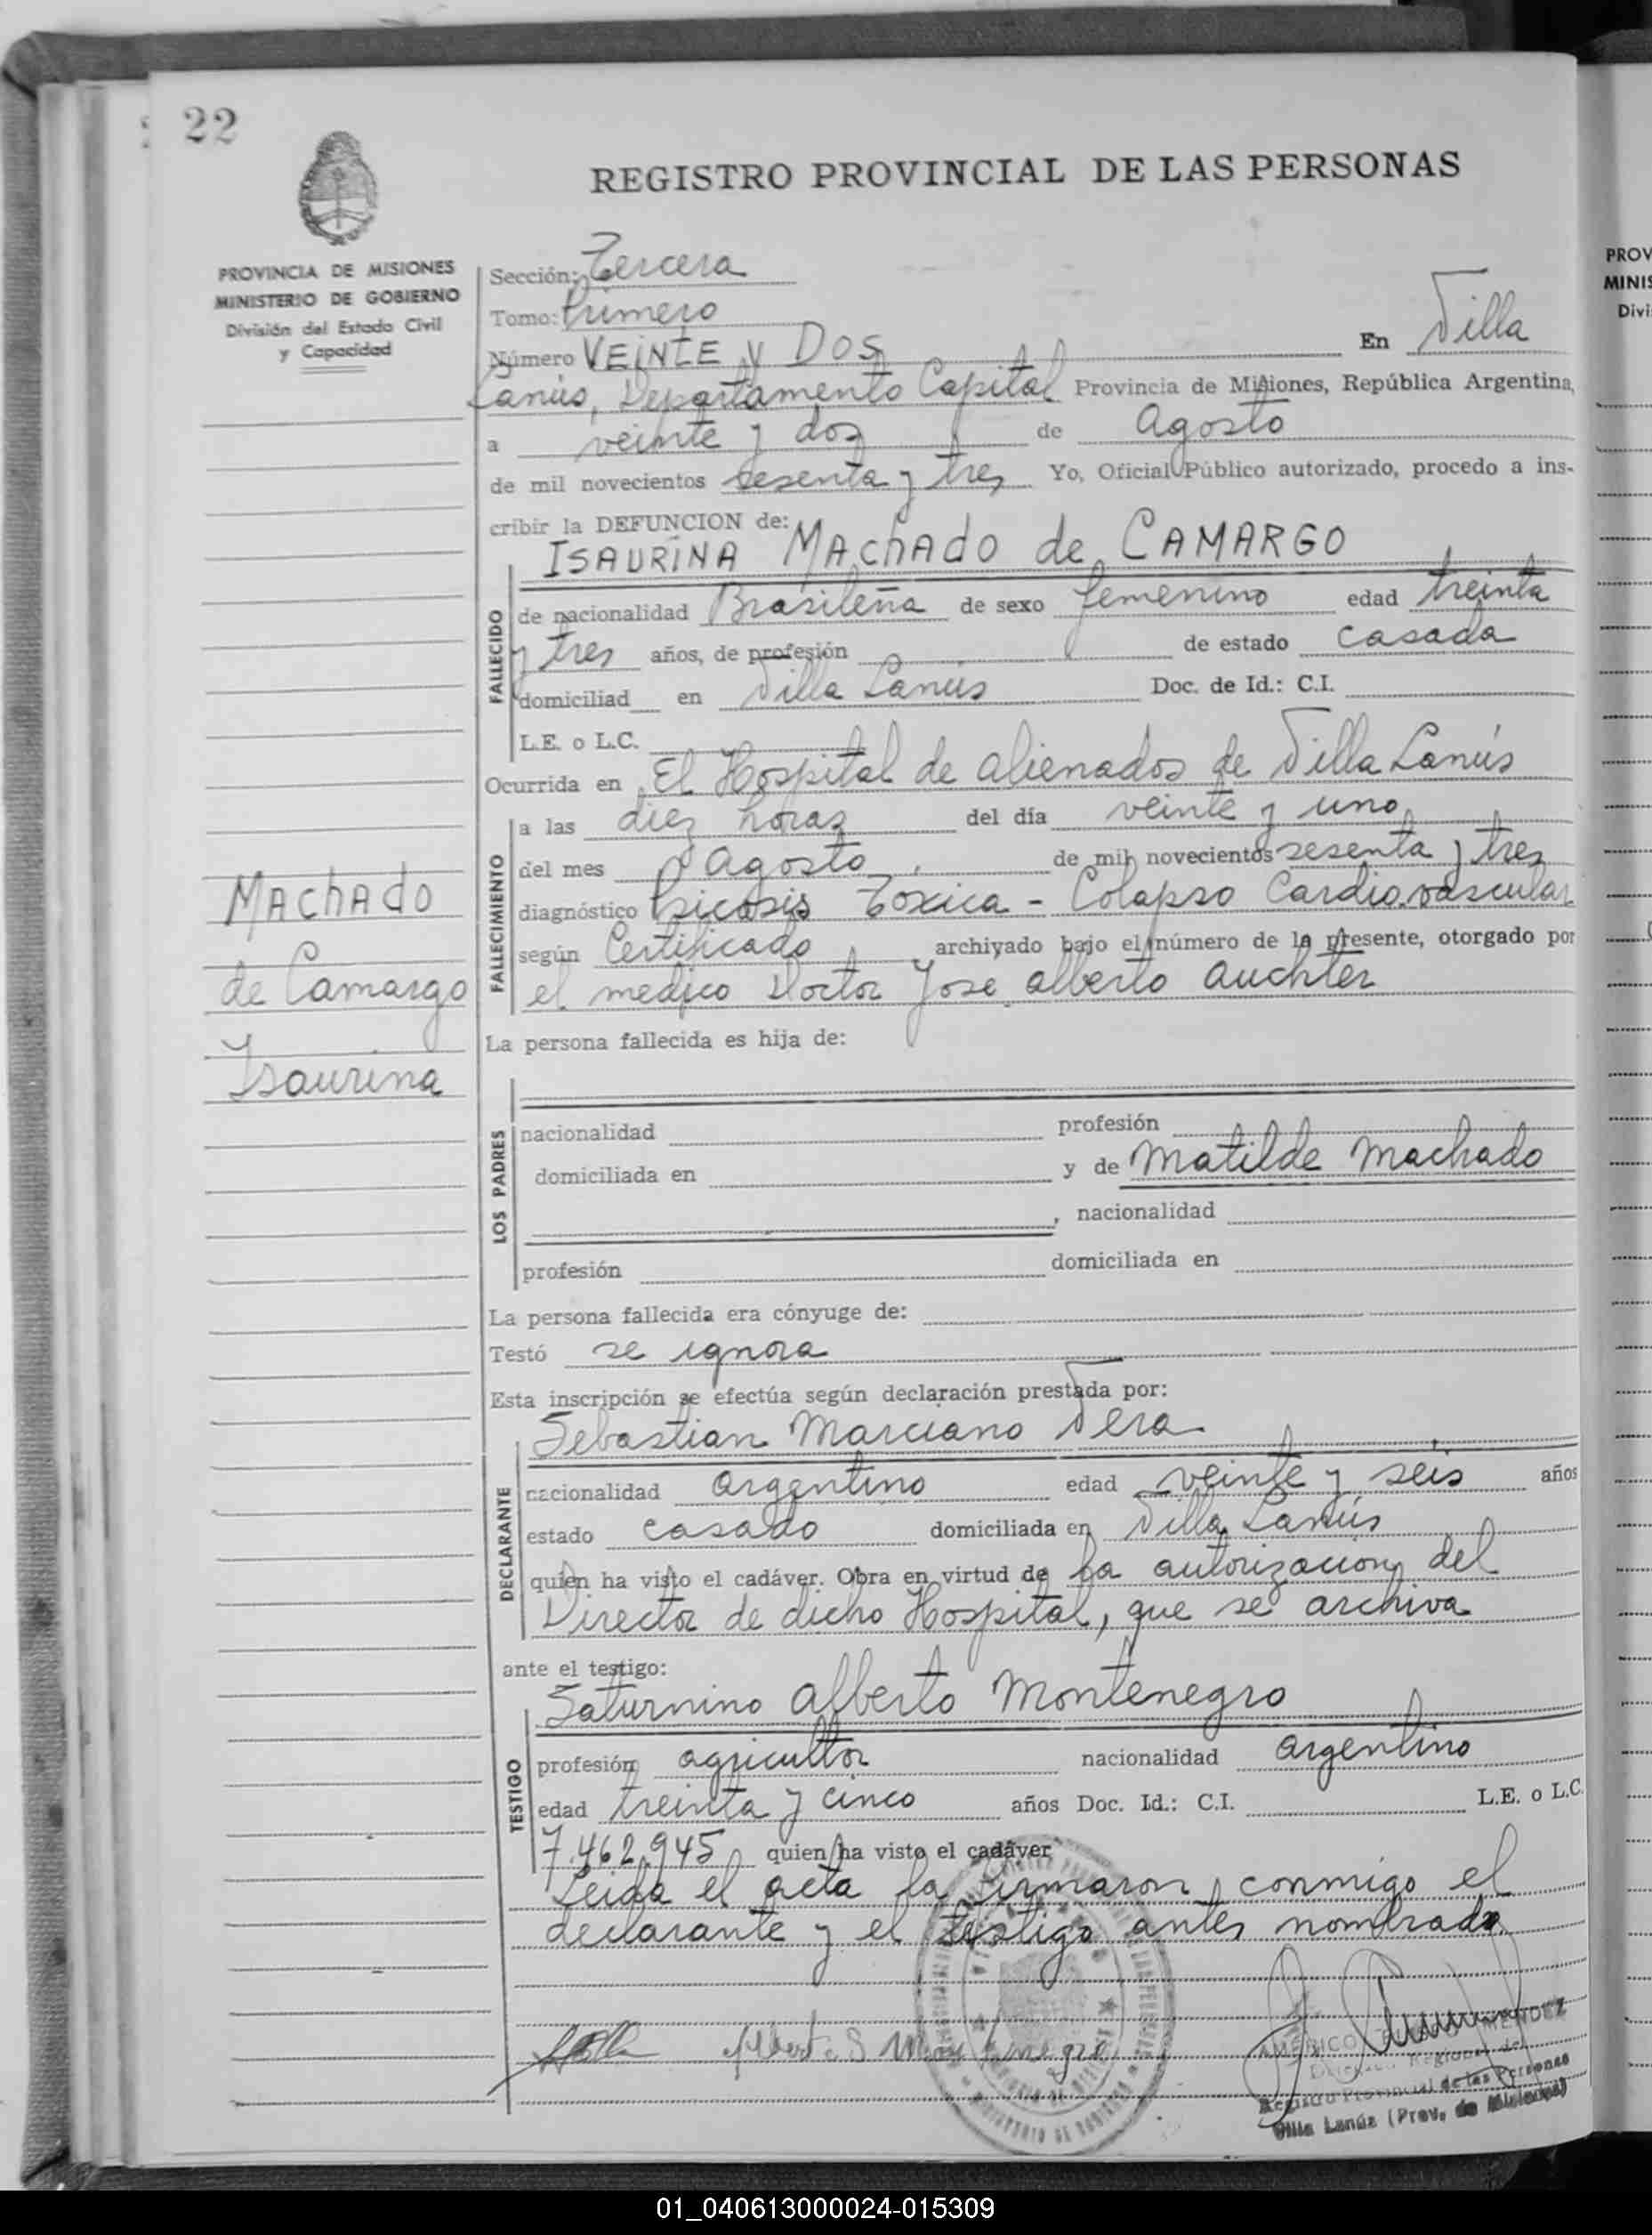 22
REGISTRO PROVINCIAL DE LAS PERSONAS
PROVINCIA DE MISIONES
MINISTERIO DE GOBIERNO
División del Estado Civil
y Capacidad
Sección: Tercera
Tomo: Primero
Número VEINTE Y DOS En Villa
Lanús, Departamento Capital Provincia de Misiones, República Argentina,
a veinte y dos de Agosto
de mil novecientos sesenta y tres Yo, Oficial Público autorizado, procedo a ins-
cribir la DEFUNCION de:
ISAURINA MAChADO de CAMARGO
FALLECIDO
de nacionalidad Brasileña de sexo femenino edad treinta
y tres años, de profesión de estado casada
domiciliad en Villa Lanús Doc. de Id.: C.I.
L.E. o L.C.
Ocurrida en El Hospital de alienados de Villa Lanús
FALLECIMIENTO
a las diez horas del día veinte y uno
del mes Agosto de mil novecientos sesenta y tres
diagnóstico Psicosis Toxica - Colapso Cardio.vascular
según Certificado archivado bajo el número de la presente, otorgado por
el medico Doctor Jose alberto auchter
MAChAdo
de Camargo
Isaurina
La persona fallecida es hija de:
LOS PADRES
nacionalidad profesión
domiciliada en y de Matilde Machado
, nacionalidad
profesión domiciliada en
La persona fallecida era cónyuge de:
Testó se ignora
Esta inscripción se efectúa según declaración prestada por:
Sebastian Marciano Vera
DECLARANTE
nacionalidad argentino edad veinte y seis años
estado casado domiciliada en Villa Lanús
quien ha visto el cadáver. Obra en virtud de la autorizacion del
Director de dicho Hospital, que se archiva
ante el testigo:
Saturnino Alberto Montenegro
TESTIGO
profesión agricultor nacionalidad argentino
edad treinta y cinco años Doc. Id.: C.I. L.E. o L.C.
7.462.945 quien ha visto el cadáver
Leida el acta la firmaron conmigo el
declarante y el testigo antes nombrado.
AMERICO MENDEZ
Regional del
Registro Provincial de las Personas
Villa Lanús (Prov. de Misiones)
PROV
MINIS
Divi
01_040613000024-015309